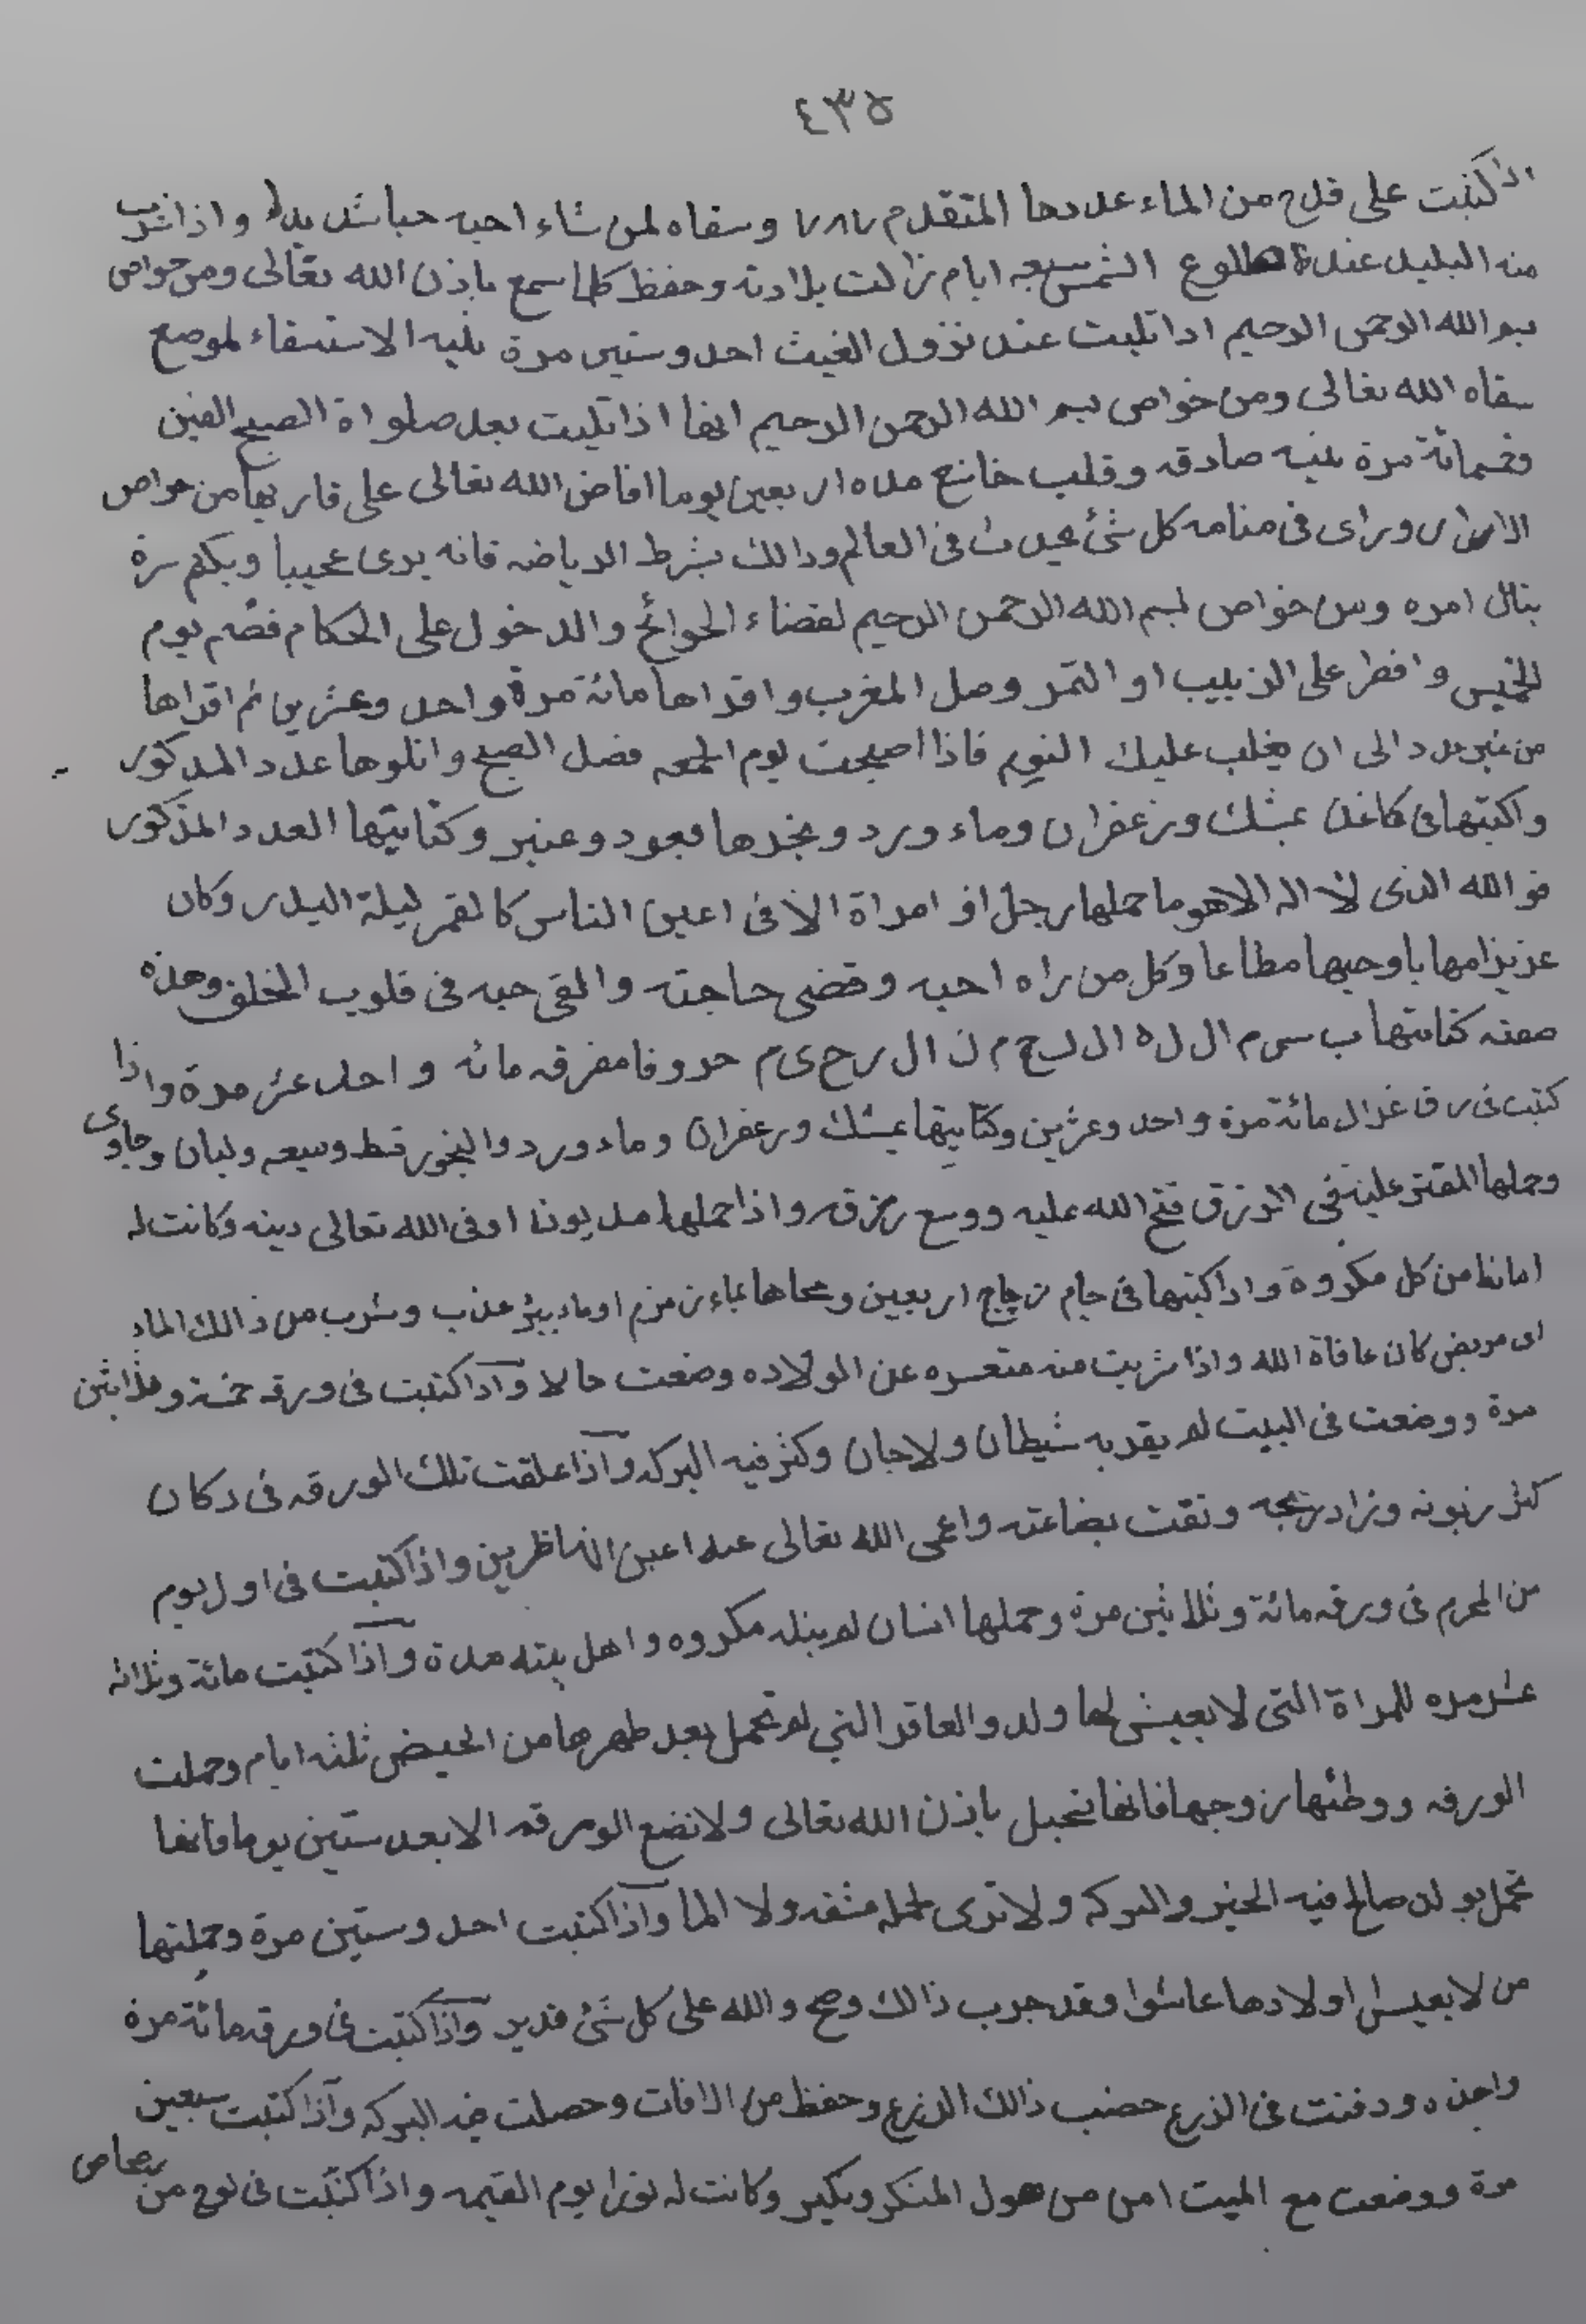 ٤٣٥
اذا كتبت على قدح من الماء عددها المتقدم ٧٨٦ وسقاه لمن شاء احبه حبا شديدا واذا شرب
منه البليد عند طلوع الشمس سبعه ايام زالت بلادته وحفظ كلما سمع باذن الله تعالى ومن خواص
بسم الله الرحمن الرحيم اذا تليت عند نزول الغيث احد وستين مرة بنيه الاستسقاء لموضع
سقاه الله تعالى ومن خواص بسم الله الرحمن الرحيم ايضا اذا تليت بعد صلواة الصبح الفين
وخمسائة مرة بنيه صادقه وقلب خاشع مده اربعين يوما افاض الله تعالى على قاريها من خواص
الاسرار وراى فى منامه كل شئ يحدث فى العالم وذالك بشرط الرياضه فانه يرى عجيبا ويكتم سره
ينال امره ومن خواص بسم الله الرحمن الرحيم لقضاء الحوائج والدخول على الحكام فصم يوم
الخميس وافطر على الزبيب او التمر وصل المغرب واقراها مائة مرة واحد وعشرين ثم اقراها
من غير عدد الى ان يغلب عليك النوم فاذا اصبحت يوم الجمعه فصل الصبح واتلوها عدد المذكور
واكتبها فى كاغد بمسك وزعفران وماء ورد وبخرها فبعود وعنبر وكتابيتها العدد المذكور
فوالله الذى لا اله الا هو ما حملها رجل او امراة الا فى اعين الناس كالقمر ليلة البدر وكان
عزيزا مهابا وجيها مطاعا وكل من راه احبه وقضى حاجته والقى حبه فى قلوب الخلق وهذه
صفته كتابتها ب س م ال ل ه ال رح م ن ال ر ح ى م حروفا مفرقه مائه واحد عشر مرة واذا
كتبت فى رق غزال مائة مرة واحد وعشرين وكتابيتها بمسك وزعفران وماء ورد والبخور قسط وميعه ولبان وجاوى
وحملها المقتر عليه فى الرزق فتح الله عليه ووسع رزقه واذا حملها مديونا اوفى الله تعالى دينه وكانت له
امانا من كل مكروه واذا كتبتها فى جام زجاج اربعين ومحاها بماء زمزم او ماء بير عذب وشرب من ذالك الماء
اى مريض كان عافاة الله واذا شربت منه متعسره عن الولاده وضعت حالا واذا كتبت فى ورقه خمسة وثلاثين
مرة ووضعت فى البيت لم يقربه شيطان ولا جان وكثر فيه البركه واذا علقت تلك الورقه فى دكان
كثر زبونه وزاد ربحه ونقت بضاعته واعمى الله تعالى عنه اعين الناظرين واذا كتبت فى اول يوم
من المحرم فى ورقه مائة وثلاثين مرة وحملها انسان لم ينله مكروه واهل بيته مدة واذا كتبت مائة وثلاثه
عشر مره للمراة التى لا يعيش لها ولد والعاقر التي لم تحمل بعد طهرها من الحيض ثلثه ايام وحملت
الورقه ووطئها زوجها فانها تحبل باذن الله تعالى ولا تضع الورقه الا بعد ستين يوما فانها
تحمل بولد صالح فيه الخير والبركه ولا ترى لحمله مشقه ولا الما واذا كتبت احد وستين مرة وحملتها
من لا يعيش اولادها عاشوا وقد جرب ذالك وصح والله على كل شئ قدير واذا كتبت فى ورقه مائة مرة
واحده ودفنت فى الزرع خصب ذالك الزرع وحفظ من الافات وحصلت فيه البركه واذا كتبت سبعين
مرة ووضعت مع الميت امن من هول المنكر ونكير وكانت له نورا يوم القيمه واذا كتبت فى لوح من رصاص